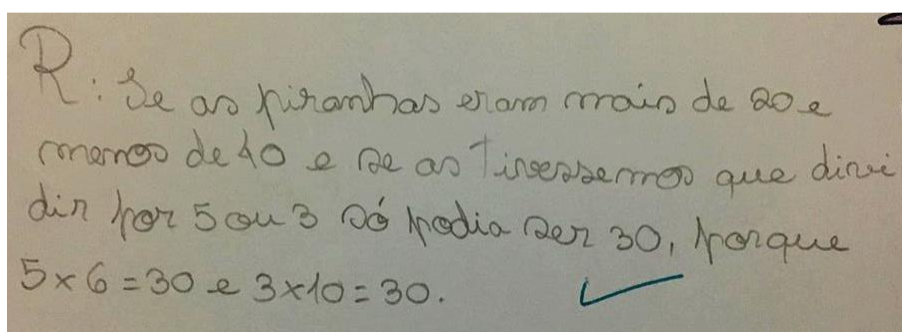 R: Se as piranhas eram mais de 20 e
menos de 40 e se as tivessemos que divi
dir por 5 ou 3 só podia ser 30, porque
5 x 6 = 30 e 3 x 10 = 30.